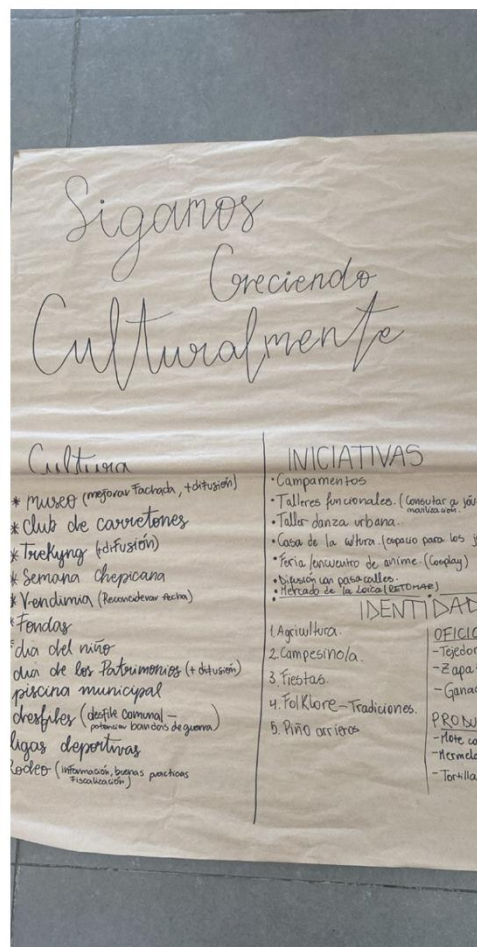 Siganos
Creciendo
Culturalmente
Cultura
* museo (mejorar Fachada, + difusión)
* Club de carretones
* Trekyng (+difusión)
* Semana Chepicana
* Vendimia (Reconsiderar fecha)
* Fondas
* dia del niño
dia de los Patrimonios (+ difusión)
piscina municipal
desfiles (desfile comunal –
potenciar bandas de guerra)
ligas deportivas
Rodeo (información, buenas practicas
Fiscalización)
INICIATIVAS
• Campamentos
• Talleres funcionales. (Consutar a
• Taller danza urbana.
• Casa de la cultura (espacio para los
• Feria /encuentro de anime. (Cosplay)
• Difusión con pasacalles.
• Mercado de la Loica (RETOMAR)
IDENTIDAD
1. Agricultura.
2. Campesino/a.
3. Fiestas.
4. FolKlore – Tradiciones.
5. Piño arrieros
OFICIO
- Tejedor
- Zapa
- Gana
PRODU
- Mote co
- Mermela
- Tortilla